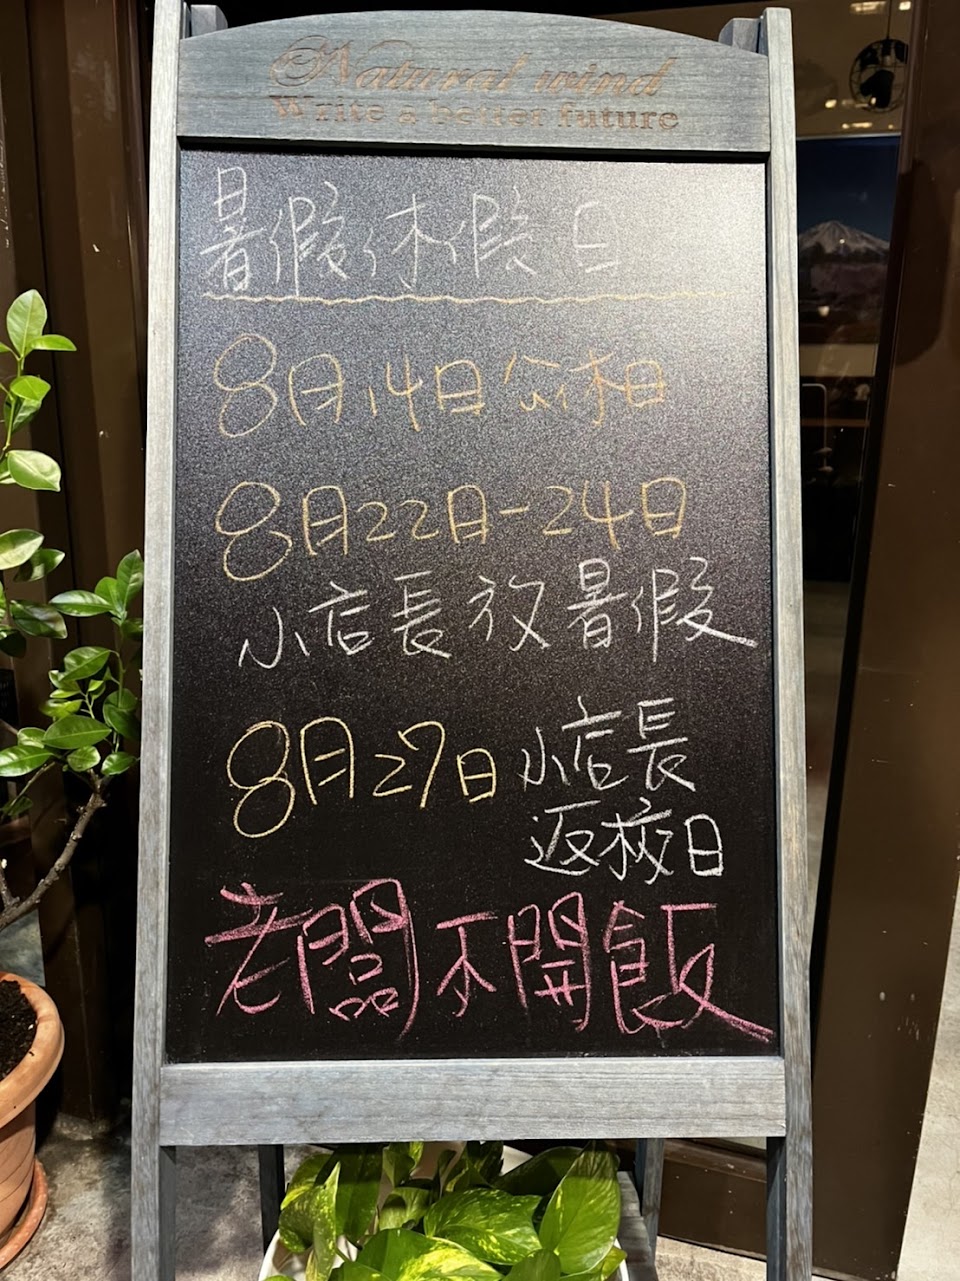 Natural wind
Write a better future
暑假休假日
8月14日公休日
8月22日-24日
小店長放暑假
8月27日小店長
返校日
老闆不開飯